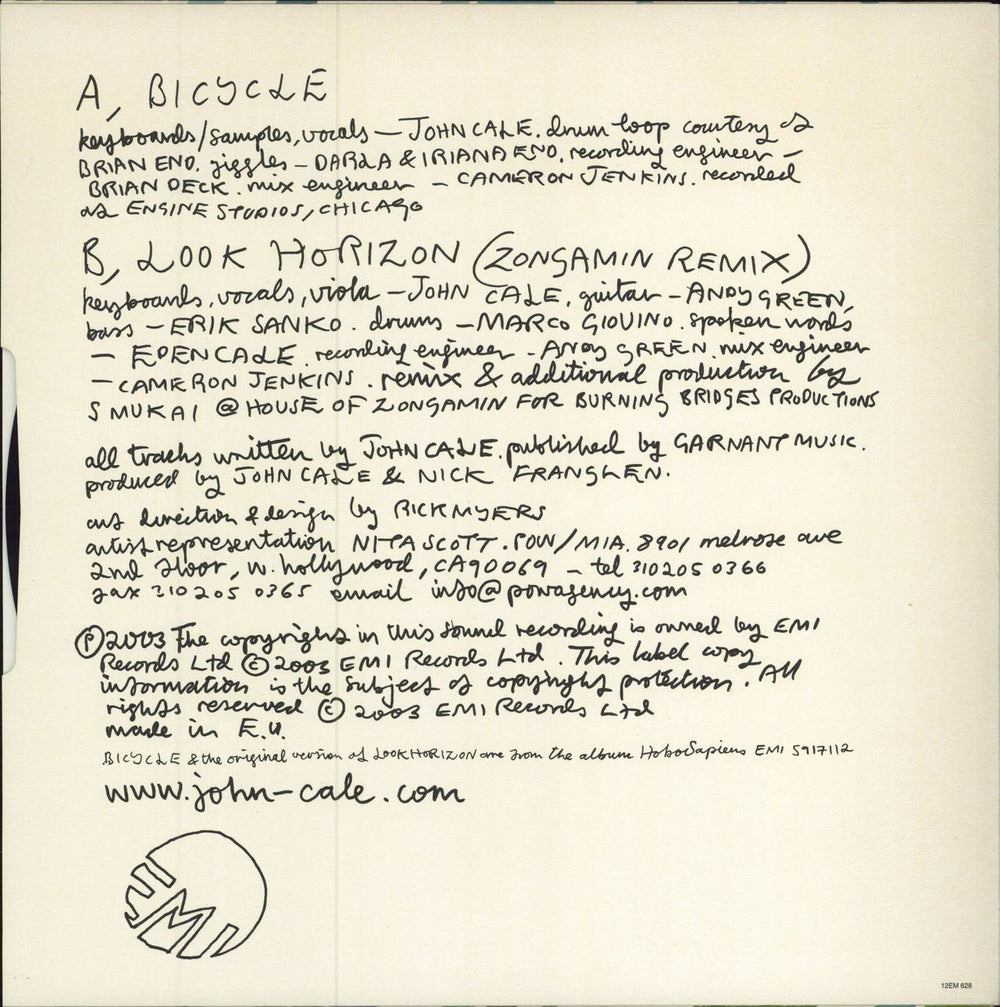 A, BICYCLE
keyboards/samples, vocals — JOHN CALE. drum loop courtesy of
BRIAN ENO. giggles – DARLA & IRIANA ENO. recording engineer –
BRIAN DECK. mix engineer – CAMERON JENKINS. recorded
at ENGINE STUDIOS, CHICAGO
B, LOOK HORIZON (ZONGAMIN REMIX)
keyboards, vocals, viola – JOHN CALE. guitar – ANDY GREEN,
bass – ERIK SANKO. drums – MARCO GIOVINO. spoken words
– EDEN CALE. recording engineer – ANDY GREEN. mix engineer
– CAMERON JENKINS. remix & additional production by
S MUKAI @ HOUSE OF ZONGAMIN FOR BURNING BRIDGES PRODUCTIONS
all tracks written by JOHN CALE. published by GARNANT MUSIC.
produced by JOHN CALE & NICK FRANGLEN.
art direction & design by RICK MYERS
artist representation NITA SCOTT. POW/MIA. 8901 melrose ave
2nd floor, w. hollywood, CA90069 – tel 310 205 0366
fax 310 205 0365 email info@powagency.com
Ⓟ2003 The copyright in this sound recording is owned by EMI
Records Ltd ©2003 EMI Records Ltd. This label copy
information is the subject of copyright protection. All
rights reserved © 2003 EMI Records Ltd
made in E.U.
BICYCLE & the original version of LOOK HORIZON are from the album HoboSapiens EMI 5917112
www.john-cale.com
EMI
12EM 628